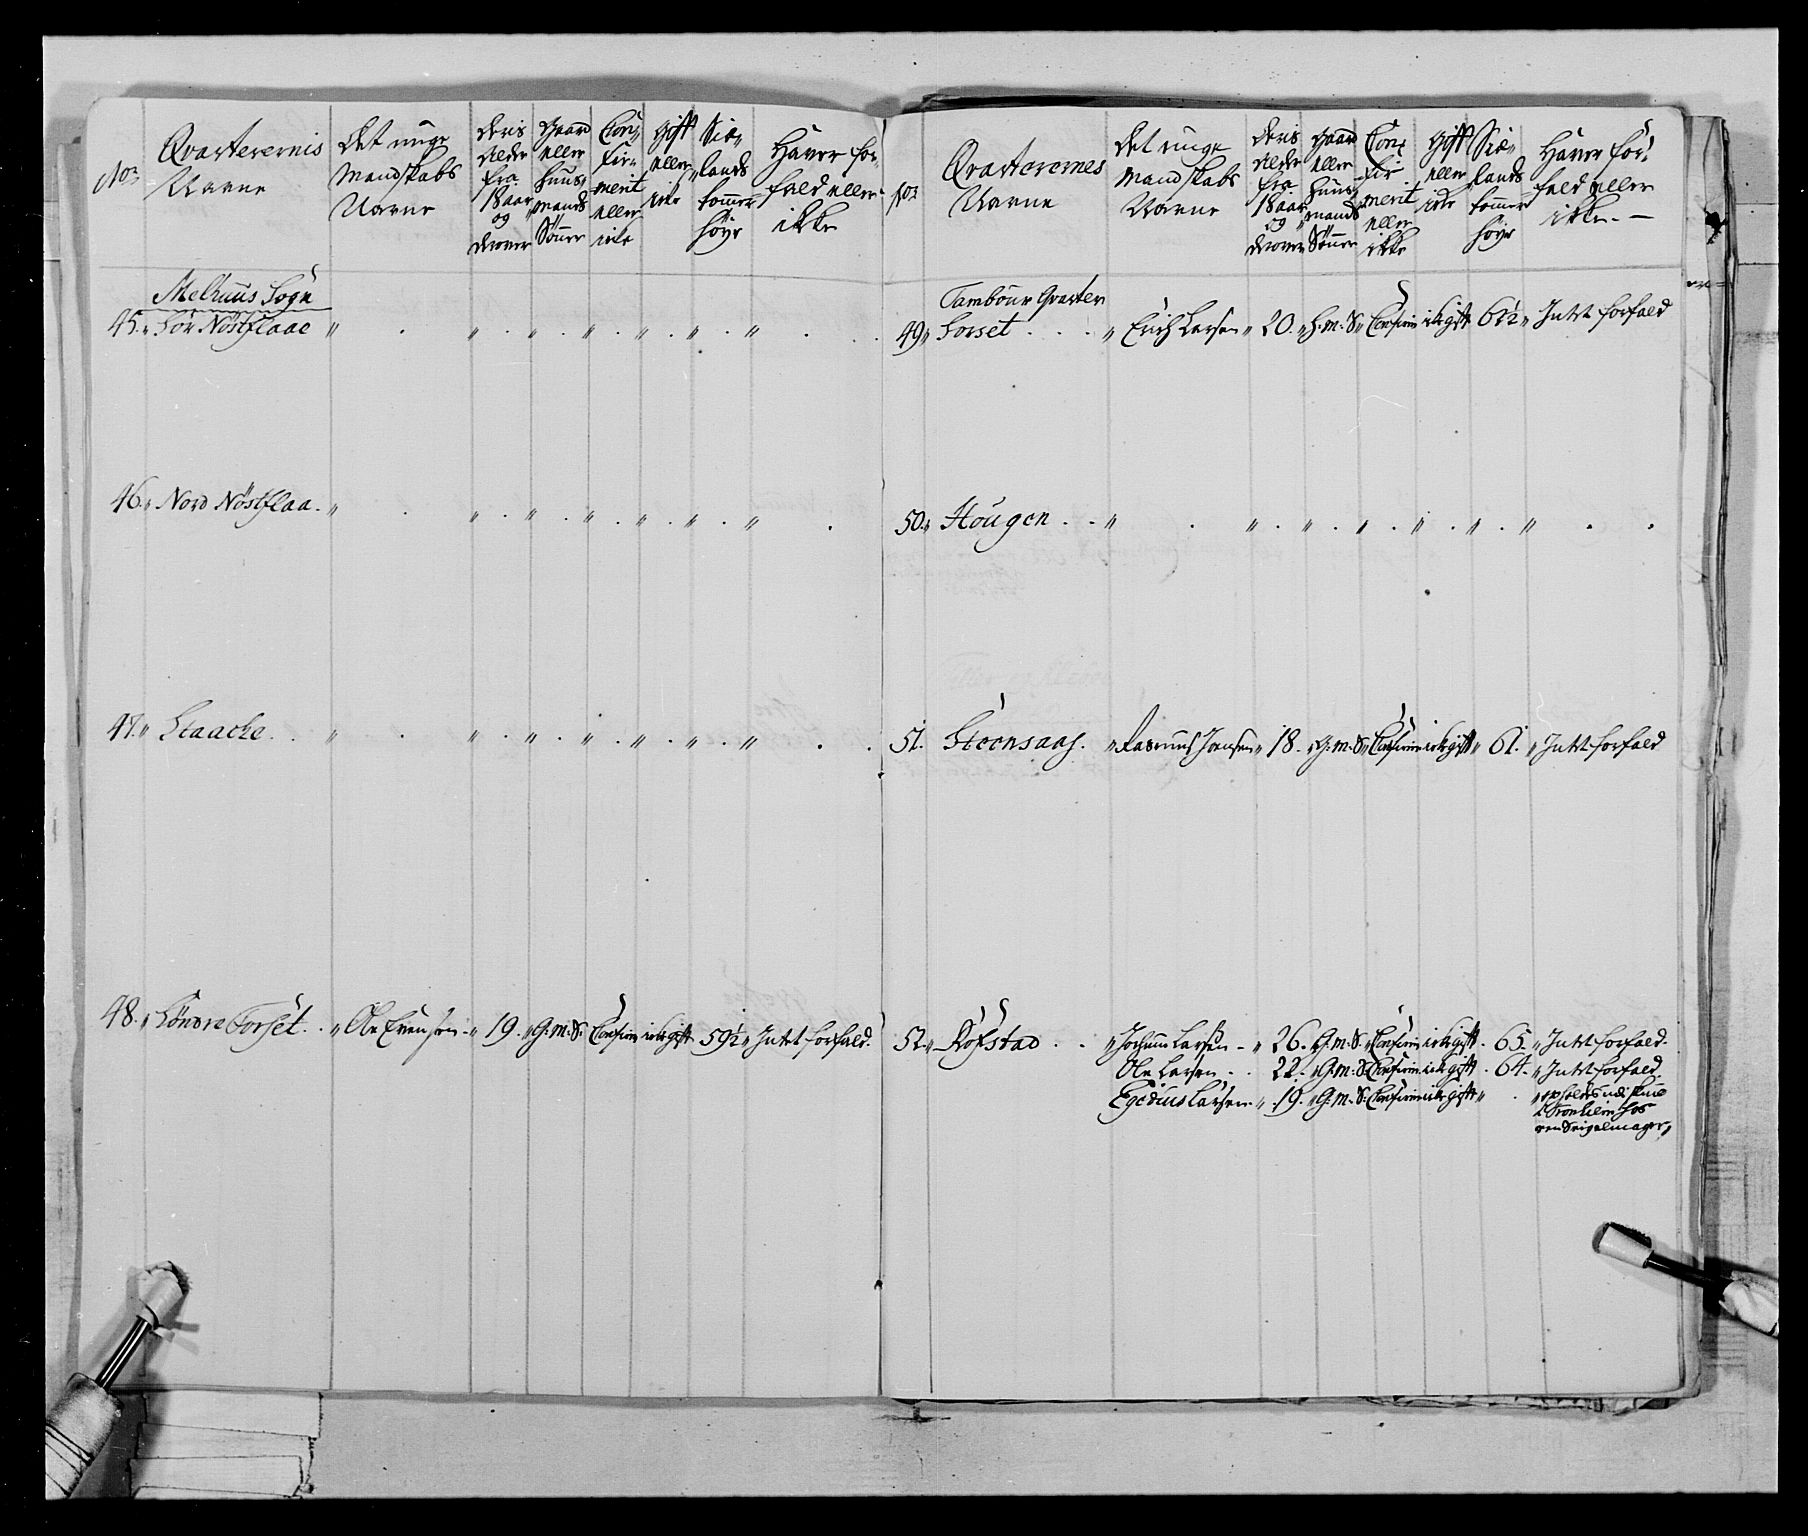 No:
Qvarterernis
Navne
Det unge
Mandskabs
Navne
Deris
Alder
fra
18 aar
og
derover
Gaard
eller
Huus-
mands
Sönner
Con-
fir-
merit
eller
ikke
Gift
eller
ikke
Siæ-
lands
tommer
höye
Haver for-
fald eller
ikke
Melhuus Sogn
45. Sör Nöstflaae
46. Nord Nöstflaa.
47. Staacke.
48. Söndre Forset. Ole Evensen 19. G: m: S. Confirm ikke gift 59½ Intet forfald.
No:
Qvarterernes
Navne
Det unge
Mandskabs
Navne
Deris
Alder
fra
18 aar
og
derover
Gaard
eller
Huus-
mands
Sönner
Con-
fir-
merit
eller
ikke
Gift
eller
ikke
Siæ-
lands
tommer
höye
Haver for-
fald eller
ikke. -
Tambour Qvarter
49. Forset Erich Larsen 20. H: m: S. Confirm ikke gift 61½ Intet forfald
50. Hougen
51. Steensaas. Rasmus Jonsen 18. G: m: S. Confirm ikke gift 61. Intet forfald
52. Kofstad Jochum Larsen 26. G: m: S. Confirm ikke gift 65. Intet forfald.
Ole Larsen 22. G: m: S. Confirm. ikke gift 64. Intet forfald.
Egedius Larsen. 19. G: m: S. Confirm ikke gift opholds udi skiul
i Tronhiem hos
en Seigelmager